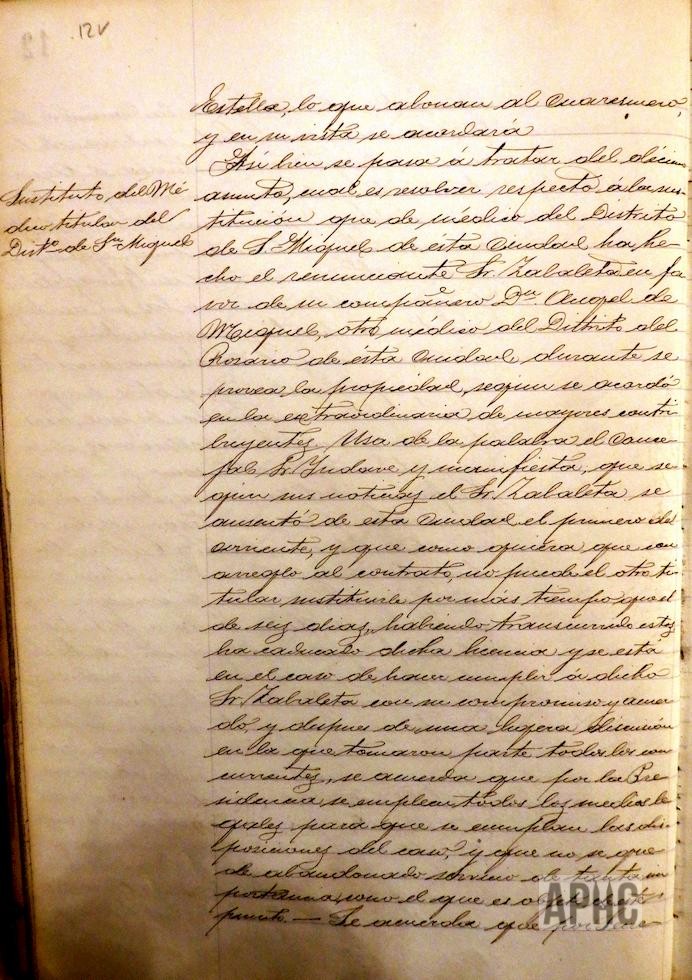 12v
Estella, lo que abonan al Cuaresmero,
y en su vista se acordará
Así bien se pasa á tratar del décimo
asunto, cual es resolver respecto á la sus-
titución que de médico del Distrito
de S. Miguel de ésta Ciudad ha he-
cho el renunciante Sr. Zabaleta en fa
vor de su compañero Dn. Angel de
Miguel, otro médico del Distrito del
Rosario de esta Ciudad durante se
provea la propiedad, segun se acordó
en la extraordinaria de mayores contri-
buyentes. Usa de la palabra el Conce-
jal Sr. Yndave y manifiesta, que se-
gún sus noticias el Sr. Zabaleta se
ausentó de esta Ciudad el primero del
corriente, y que como quiera que con
arreglo al contrato, no puede el otro ti-
tular sustituirle por más tiempo que el
de seis dias, habiendo transcurrido estos
ha caducado dicha licencia y se está
en el caso de hacer cumplir á dicho
Sr. Zabaleta con su compromiso y acuer
do, y despues de una ligera discusión
en la que tomaron parte todos los con
currentes, se acuerda que por la Pre
sidencia se emplean todos los medios le
gales para que se cumplan las dis-
posiciones del caso, y que no se que
de abandonado servicio de tanta im
portancia como el que es objeto de este
punto. — Se acuerda que por
Sustituto del Mé
dico titular del
Distº. de Sn. Miguel
APHC